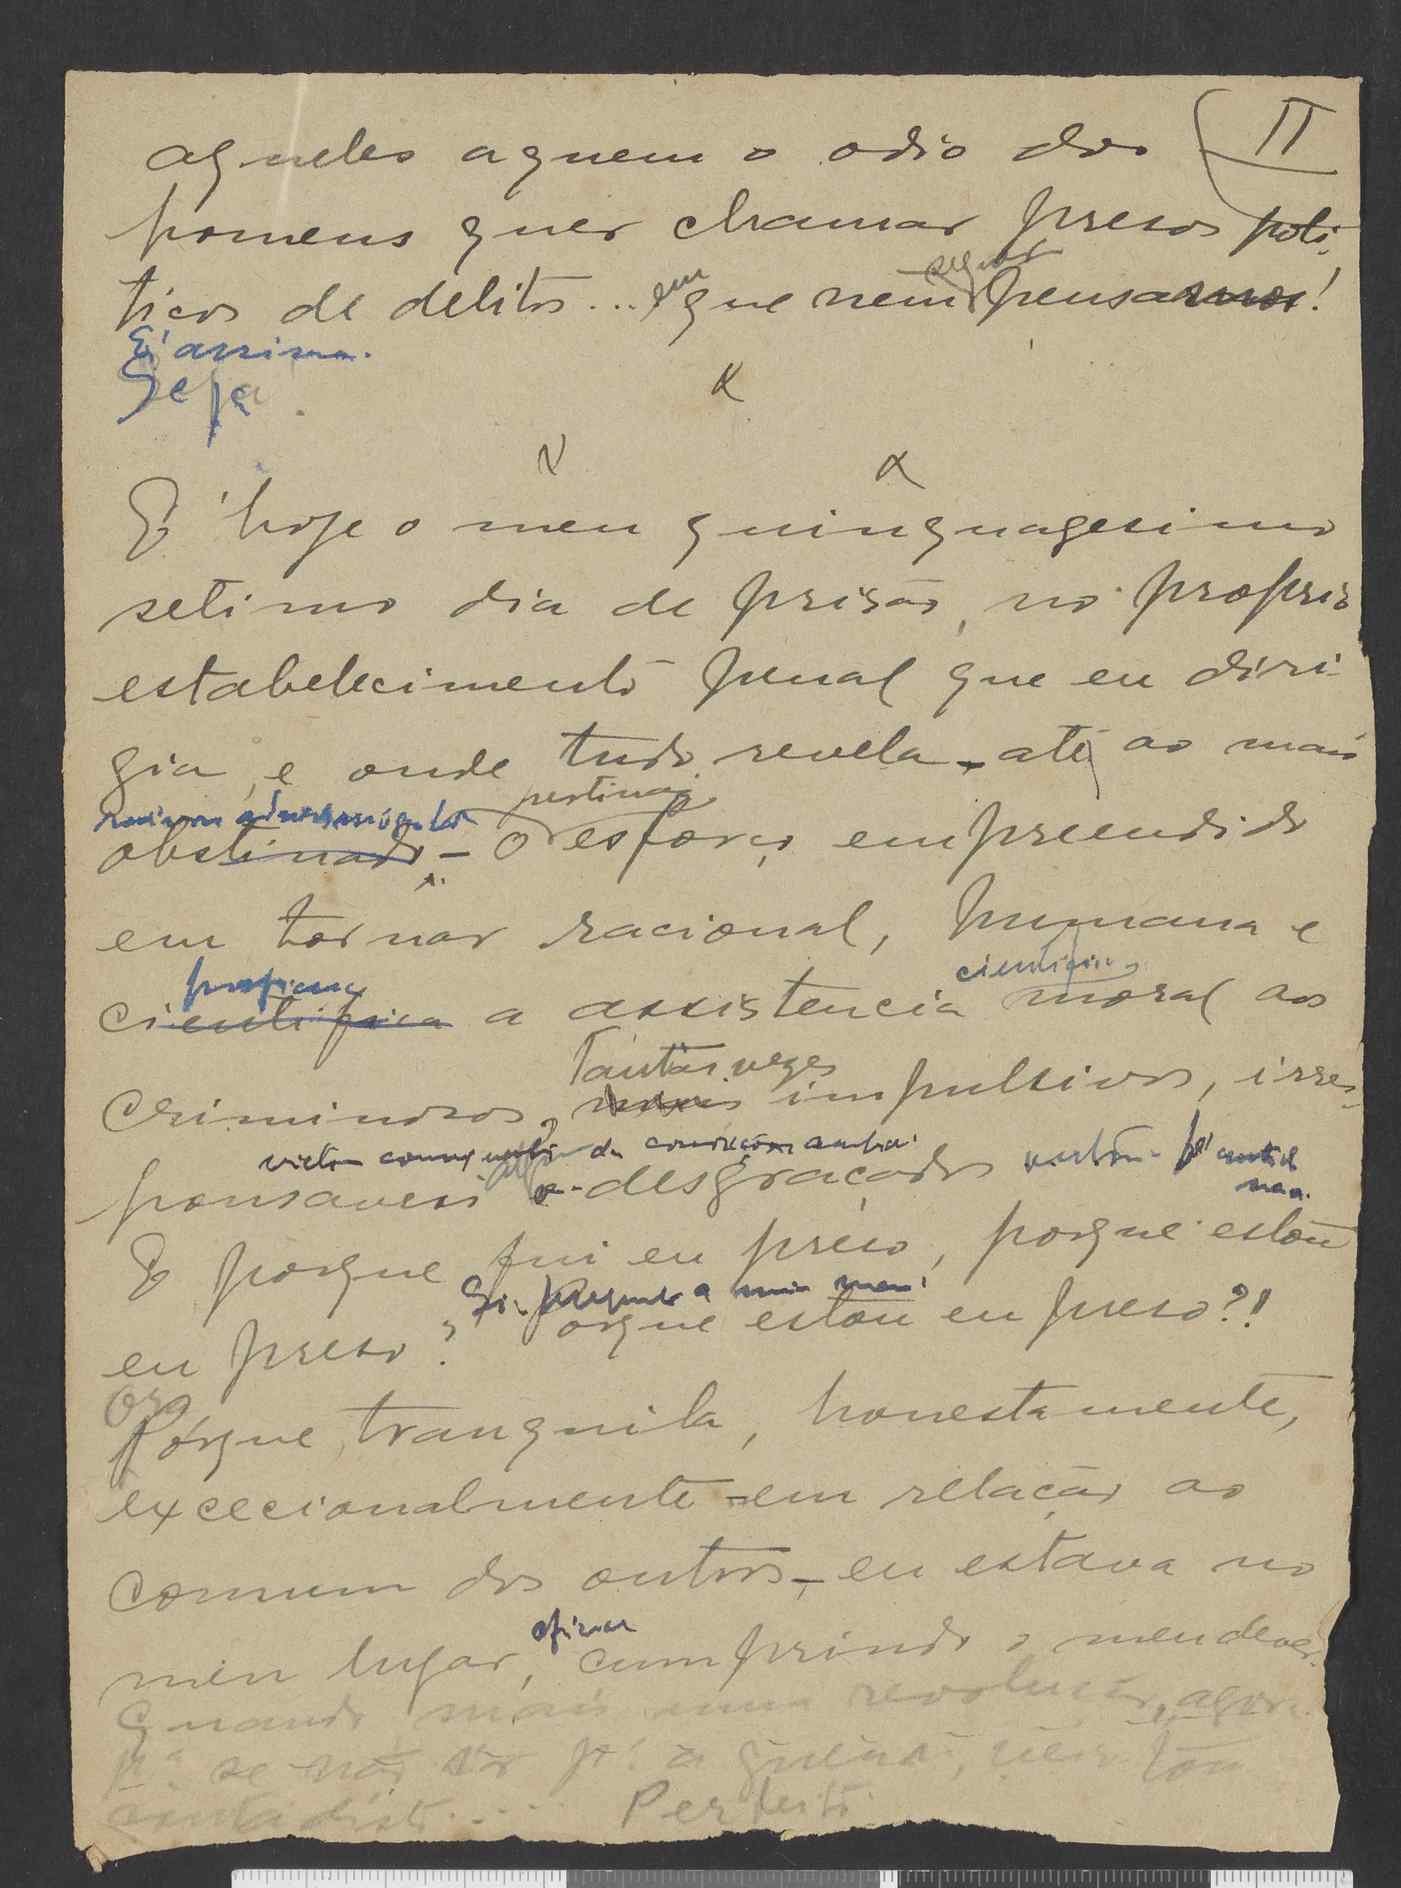 II
aqueles a quem o odio dos
homens quer chamar presos poli-
ticos de delitos... em que nem sequer pensamos!
E' assim.
Seja.
x
x x
E' hoje o meu quinquagesimo
setimo dia de prisão, no proprio
estabelecimento penal que eu diri-
gia, e onde tudo revela - até ao mais
pertinaz
obstinado - o esforço empreendido
em tornar racional, humana e
cientifica
cientifica a assistencia moral aos
Tantas vezes
criminosos, mais impulsivos, irres-
ponsaveis e desgraçados
E porque fui eu prêso, porque estou
Si pergunto a mim
eu preso? Porque estou eu preso?!
Ora
Porque, tranquila, honestamente,
excecionalmente - em relação ao
comum dos outros -, eu estava no
meu lugar, cumprindo o meu dever.
Quando mais uma revolução, agora
se não
conta disto.... Perfeito.